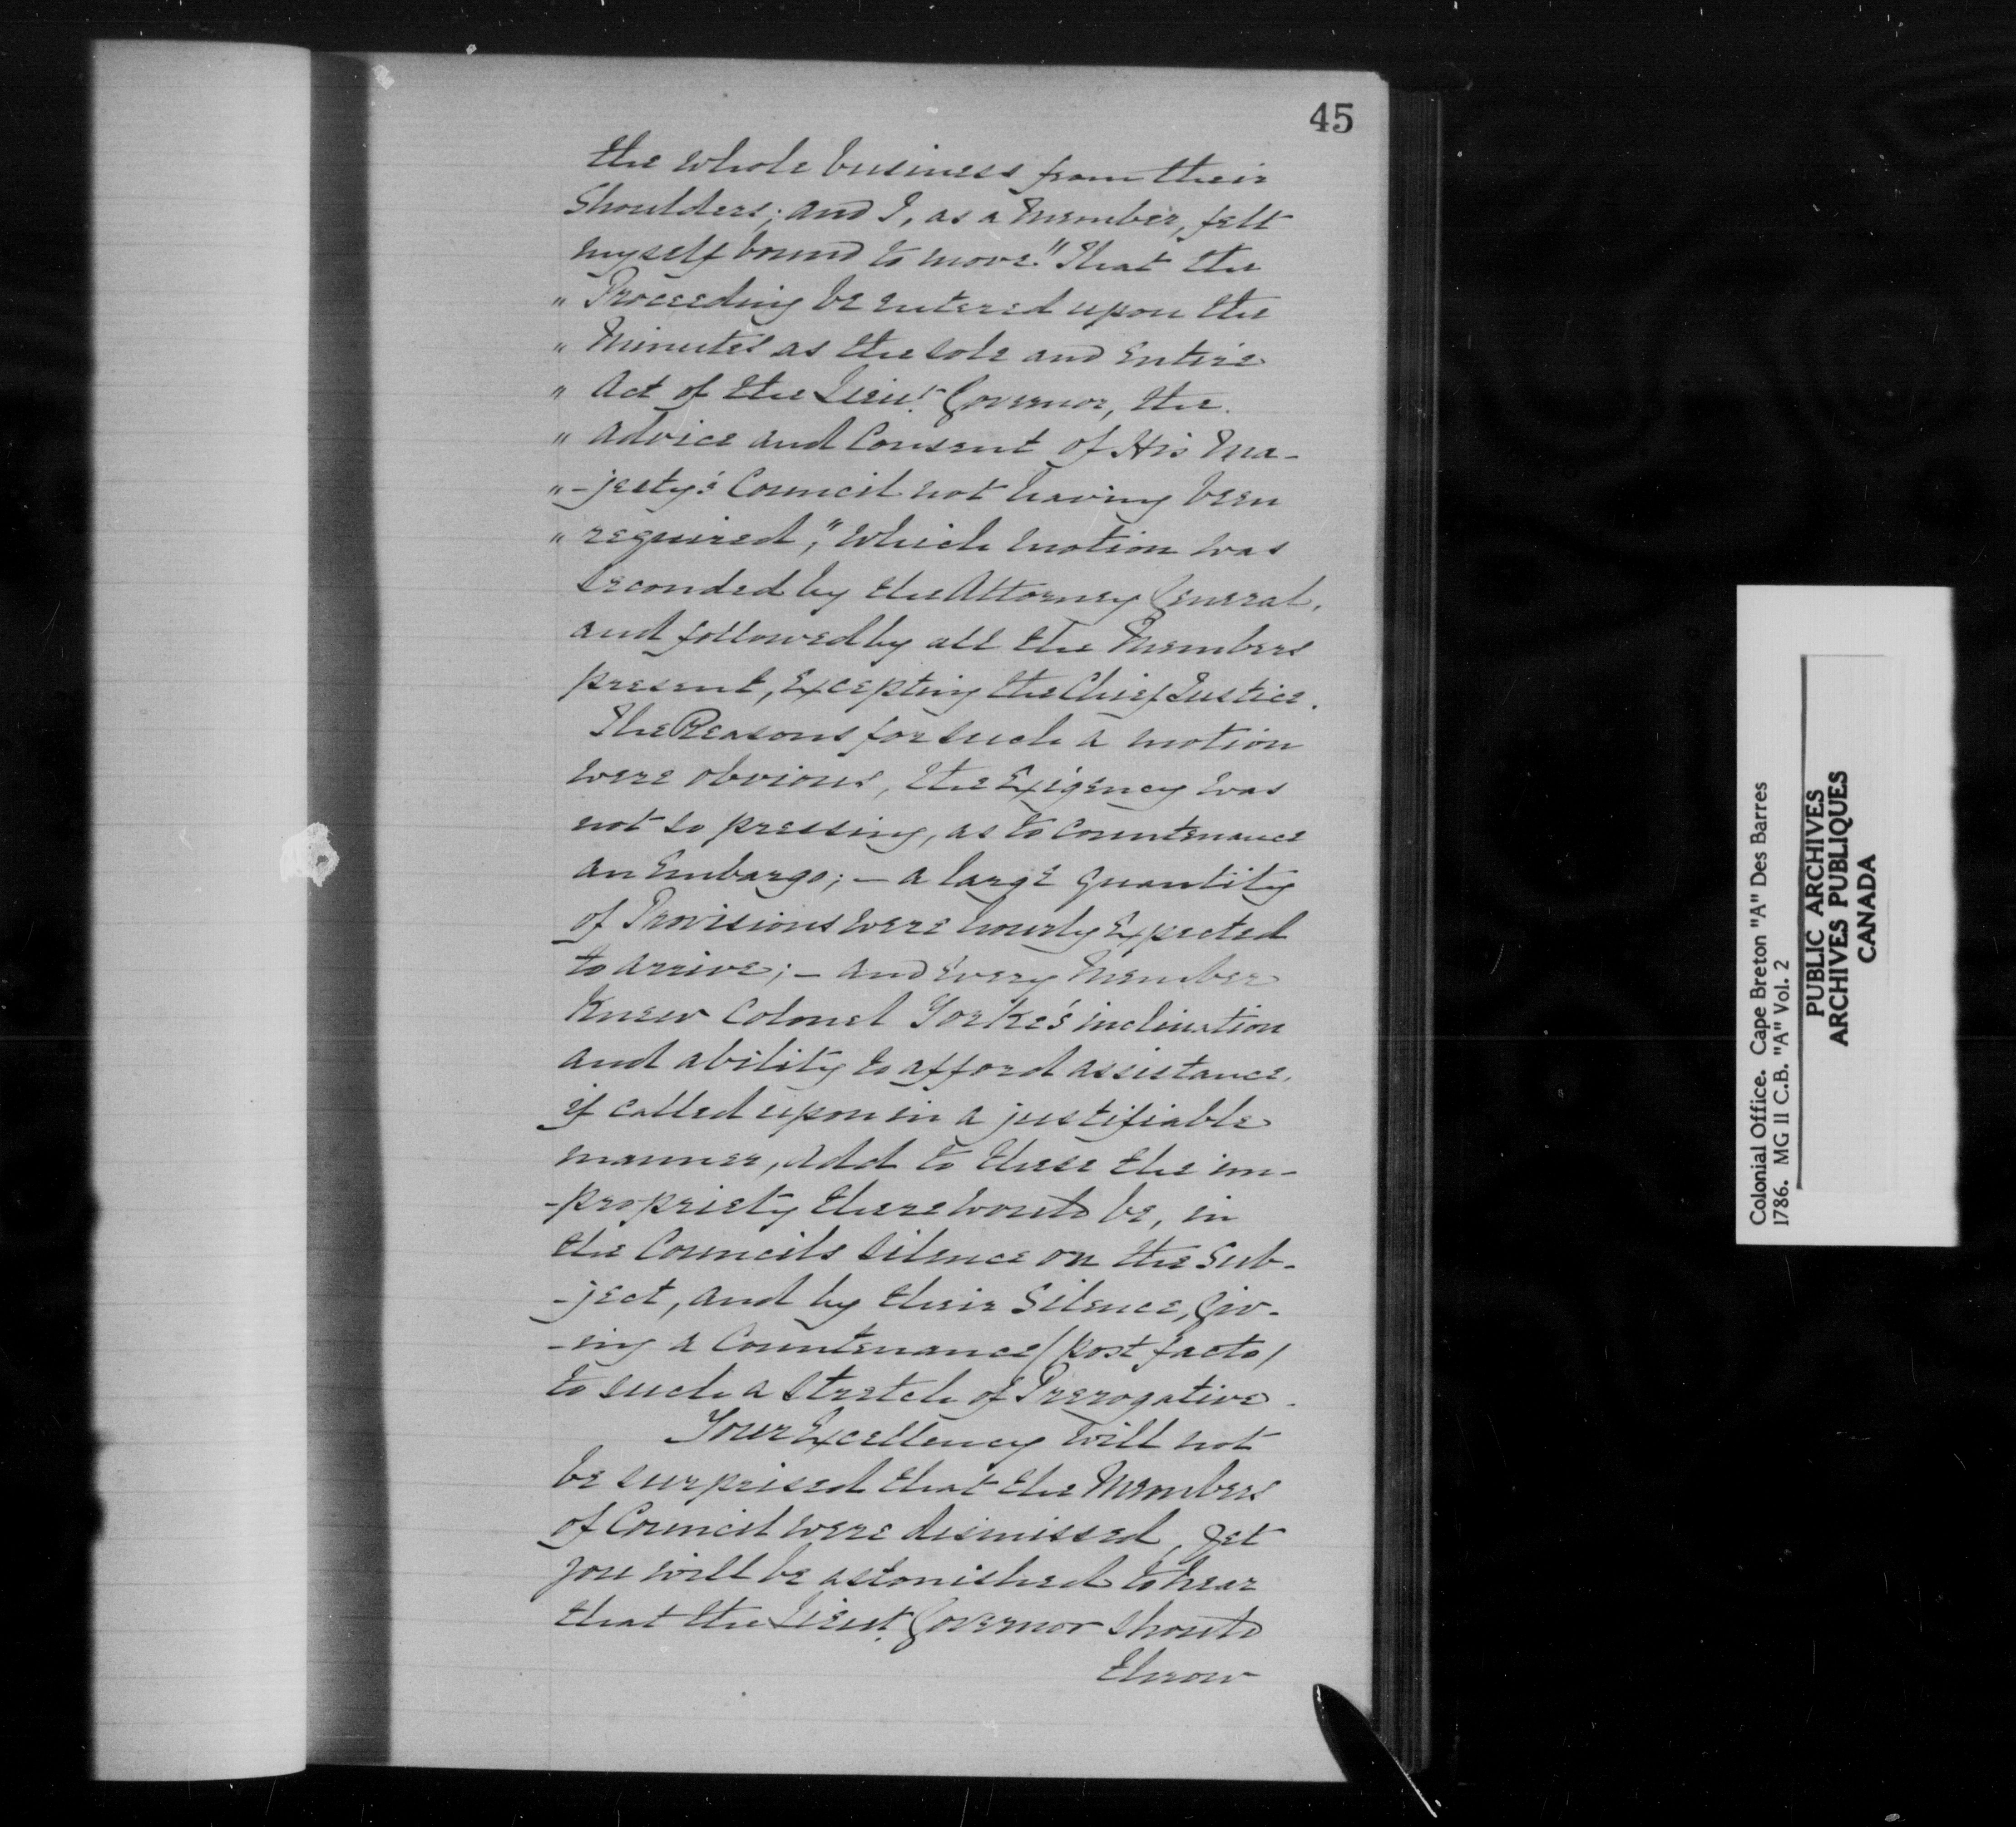 45
the whole business from their
Shoulders; and I, as a Member, felt
myself bound to move "That the
" Proceeding be entered upon the
" Minutes as the sole and entire
" Act of the Lieut. Governor, the
" advice and Consent of His Ma-
" -jesty's Council not having been
" required," which motion was
seconded by the Attorney General,
and followed by all the Members
present, excepting the Chief Justice.
The Reasons for such a motion
were obvious, the Exigency was
not so pressing, as to countenance
an Embargo; – a large quantity
of Provisions were hourly Expected
to arrive; – and every Member
Knew Colonel Yorke's inclination
and ability to afford assistance,
if called upon in a justifiable
manner, add to these the im-
-propriety there would be, in
the Councils silence on the Sub-
-ject, and by their Silence, Giv-
-ing a Countenance (post facto)
to such a Stretch of Prerogative.
Your Excellency will not
be surprised that the Members
of Council were dismissed, yet
you will be astonished to hear
that the Lieut. Governor should
throw
Colonial Office. Cape Breton "A" Des Barres
1786. MG II C.B. "A" Vol. 2
PUBLIC ARCHIVES
ARCHIVES PUBLIQUES
CANADA